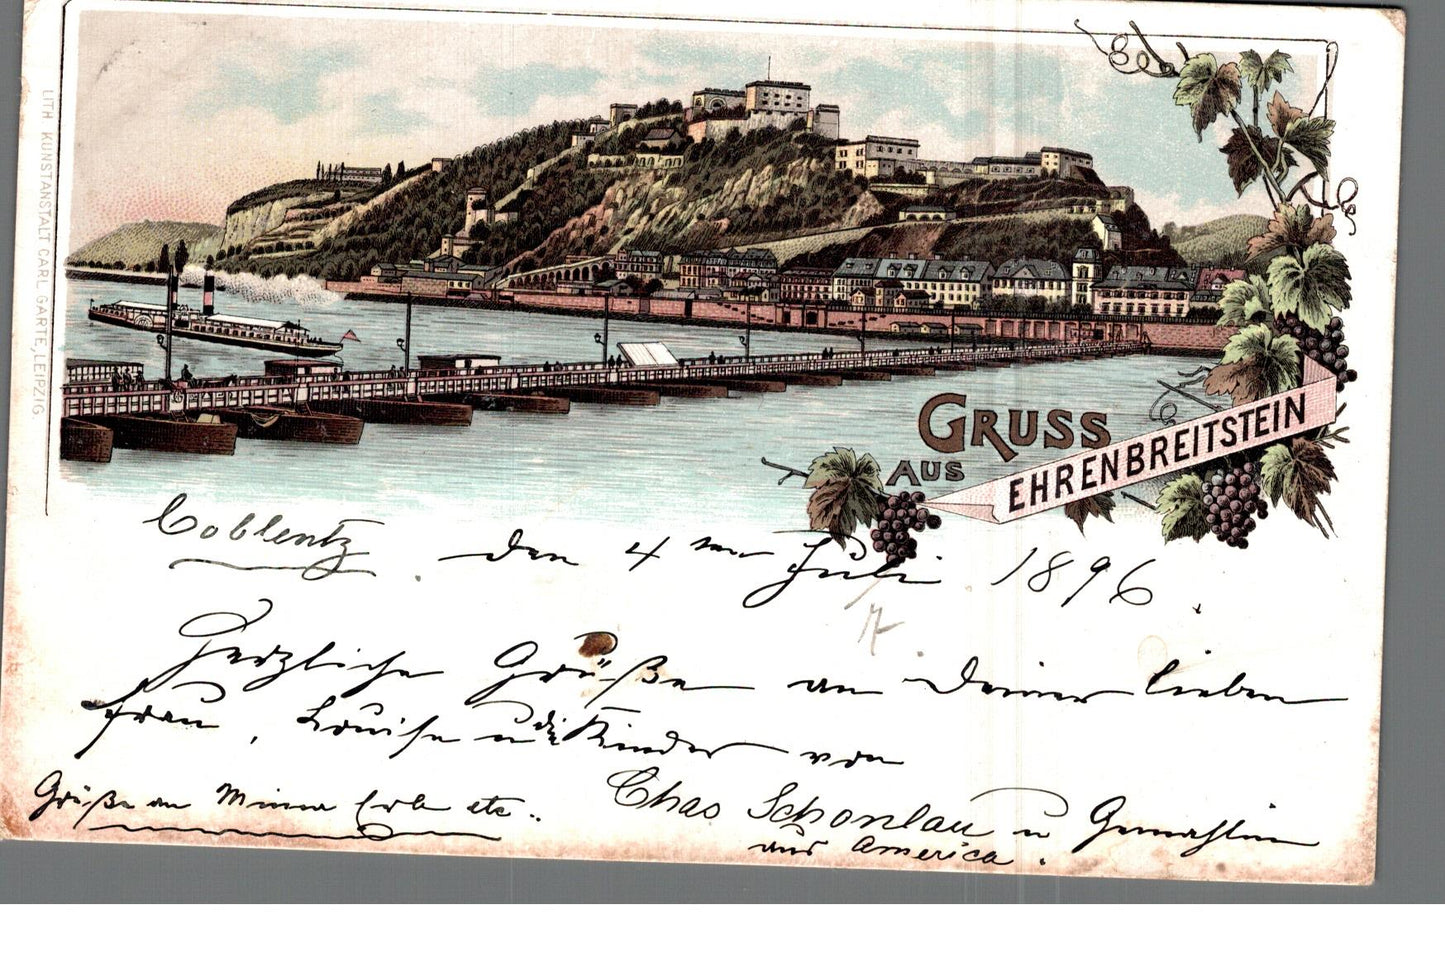 LITH. KUNSTANSTALT CARL GARTE, LEIPZIG.
GRUSS
AUS
EHRENBREITSTEIN
Coblentz, den 4ten Juli 1896.
Herzliche Grüße an Deine lieben
Frau, Louise u die Kinder von
Chas Schonlau u Gemahlin
aus America.
Grüße an Minna Erle etc..